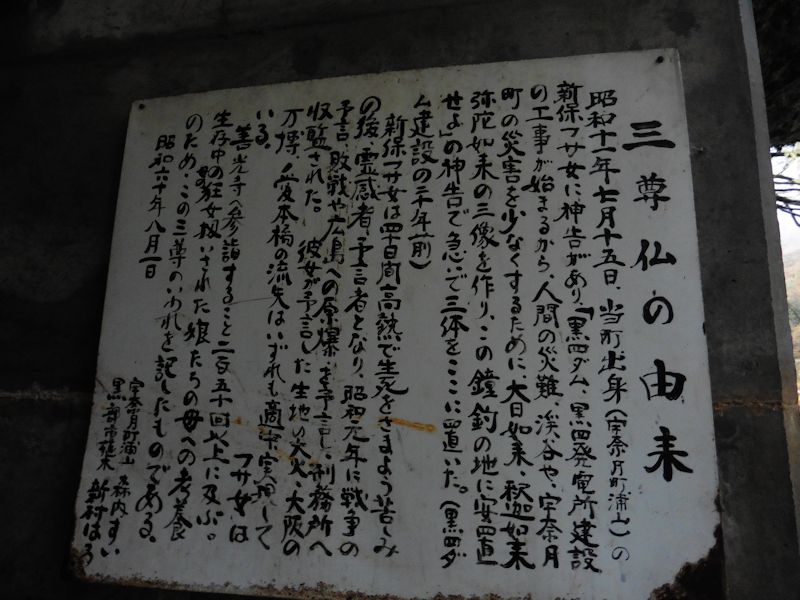 三尊仏の由来
昭和十一年七月十五日、当町出身（宇奈月町浦山）の
新保フサ女に神告があり、「黒四ダム、黒四発電所建設
の工事が始まるから、人間の災難、渓谷や、宇奈月
町の災害を少なくするために、大日如来、釈迦如来
弥陀如来の三像を作り、この鐘釣の地に安置
せよ」の神告で急いで三体をここに置いた。（黒四ダ
ム建設の二千年前）
新保フサ女は四十日間高熱で生死をさまよう苦しみ
の後、霊感者、予言者となり、昭和元年に戦争の
予言、敗戦や広島への原爆を予言し、刑務所へ
収監された。彼女が予言した生地の大火、大阪の
万博、愛本橋の流失はいずれも適中実現して
いる。
善光寺へ参詣すること二百五十回以上に及ぶ。フサ女は
生存中の狂女扱いされた娘たちの母への孝養
のため、この三尊のいわれを記したものである。
昭和六十年八月一日
宇奈月町浦山 森内すい
黒部市植木 新村はる